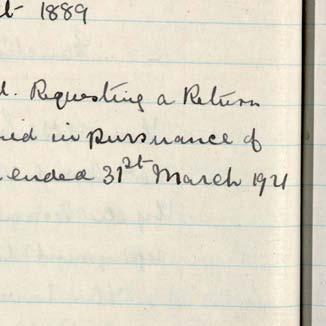 1889
Requesting a Return
in pursuance of
ended 31st March 1921